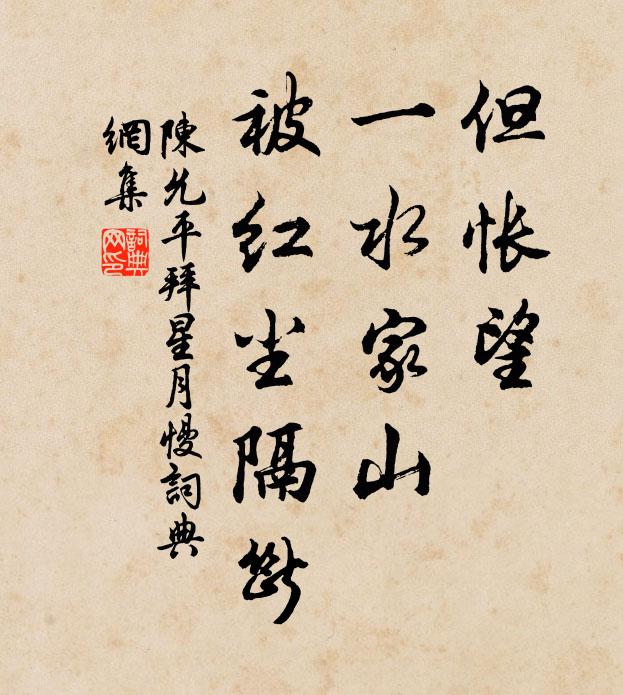 但怅望
一水家山
被红尘隔断
陳允平拜星月慢詞典
網集
詞典
网印